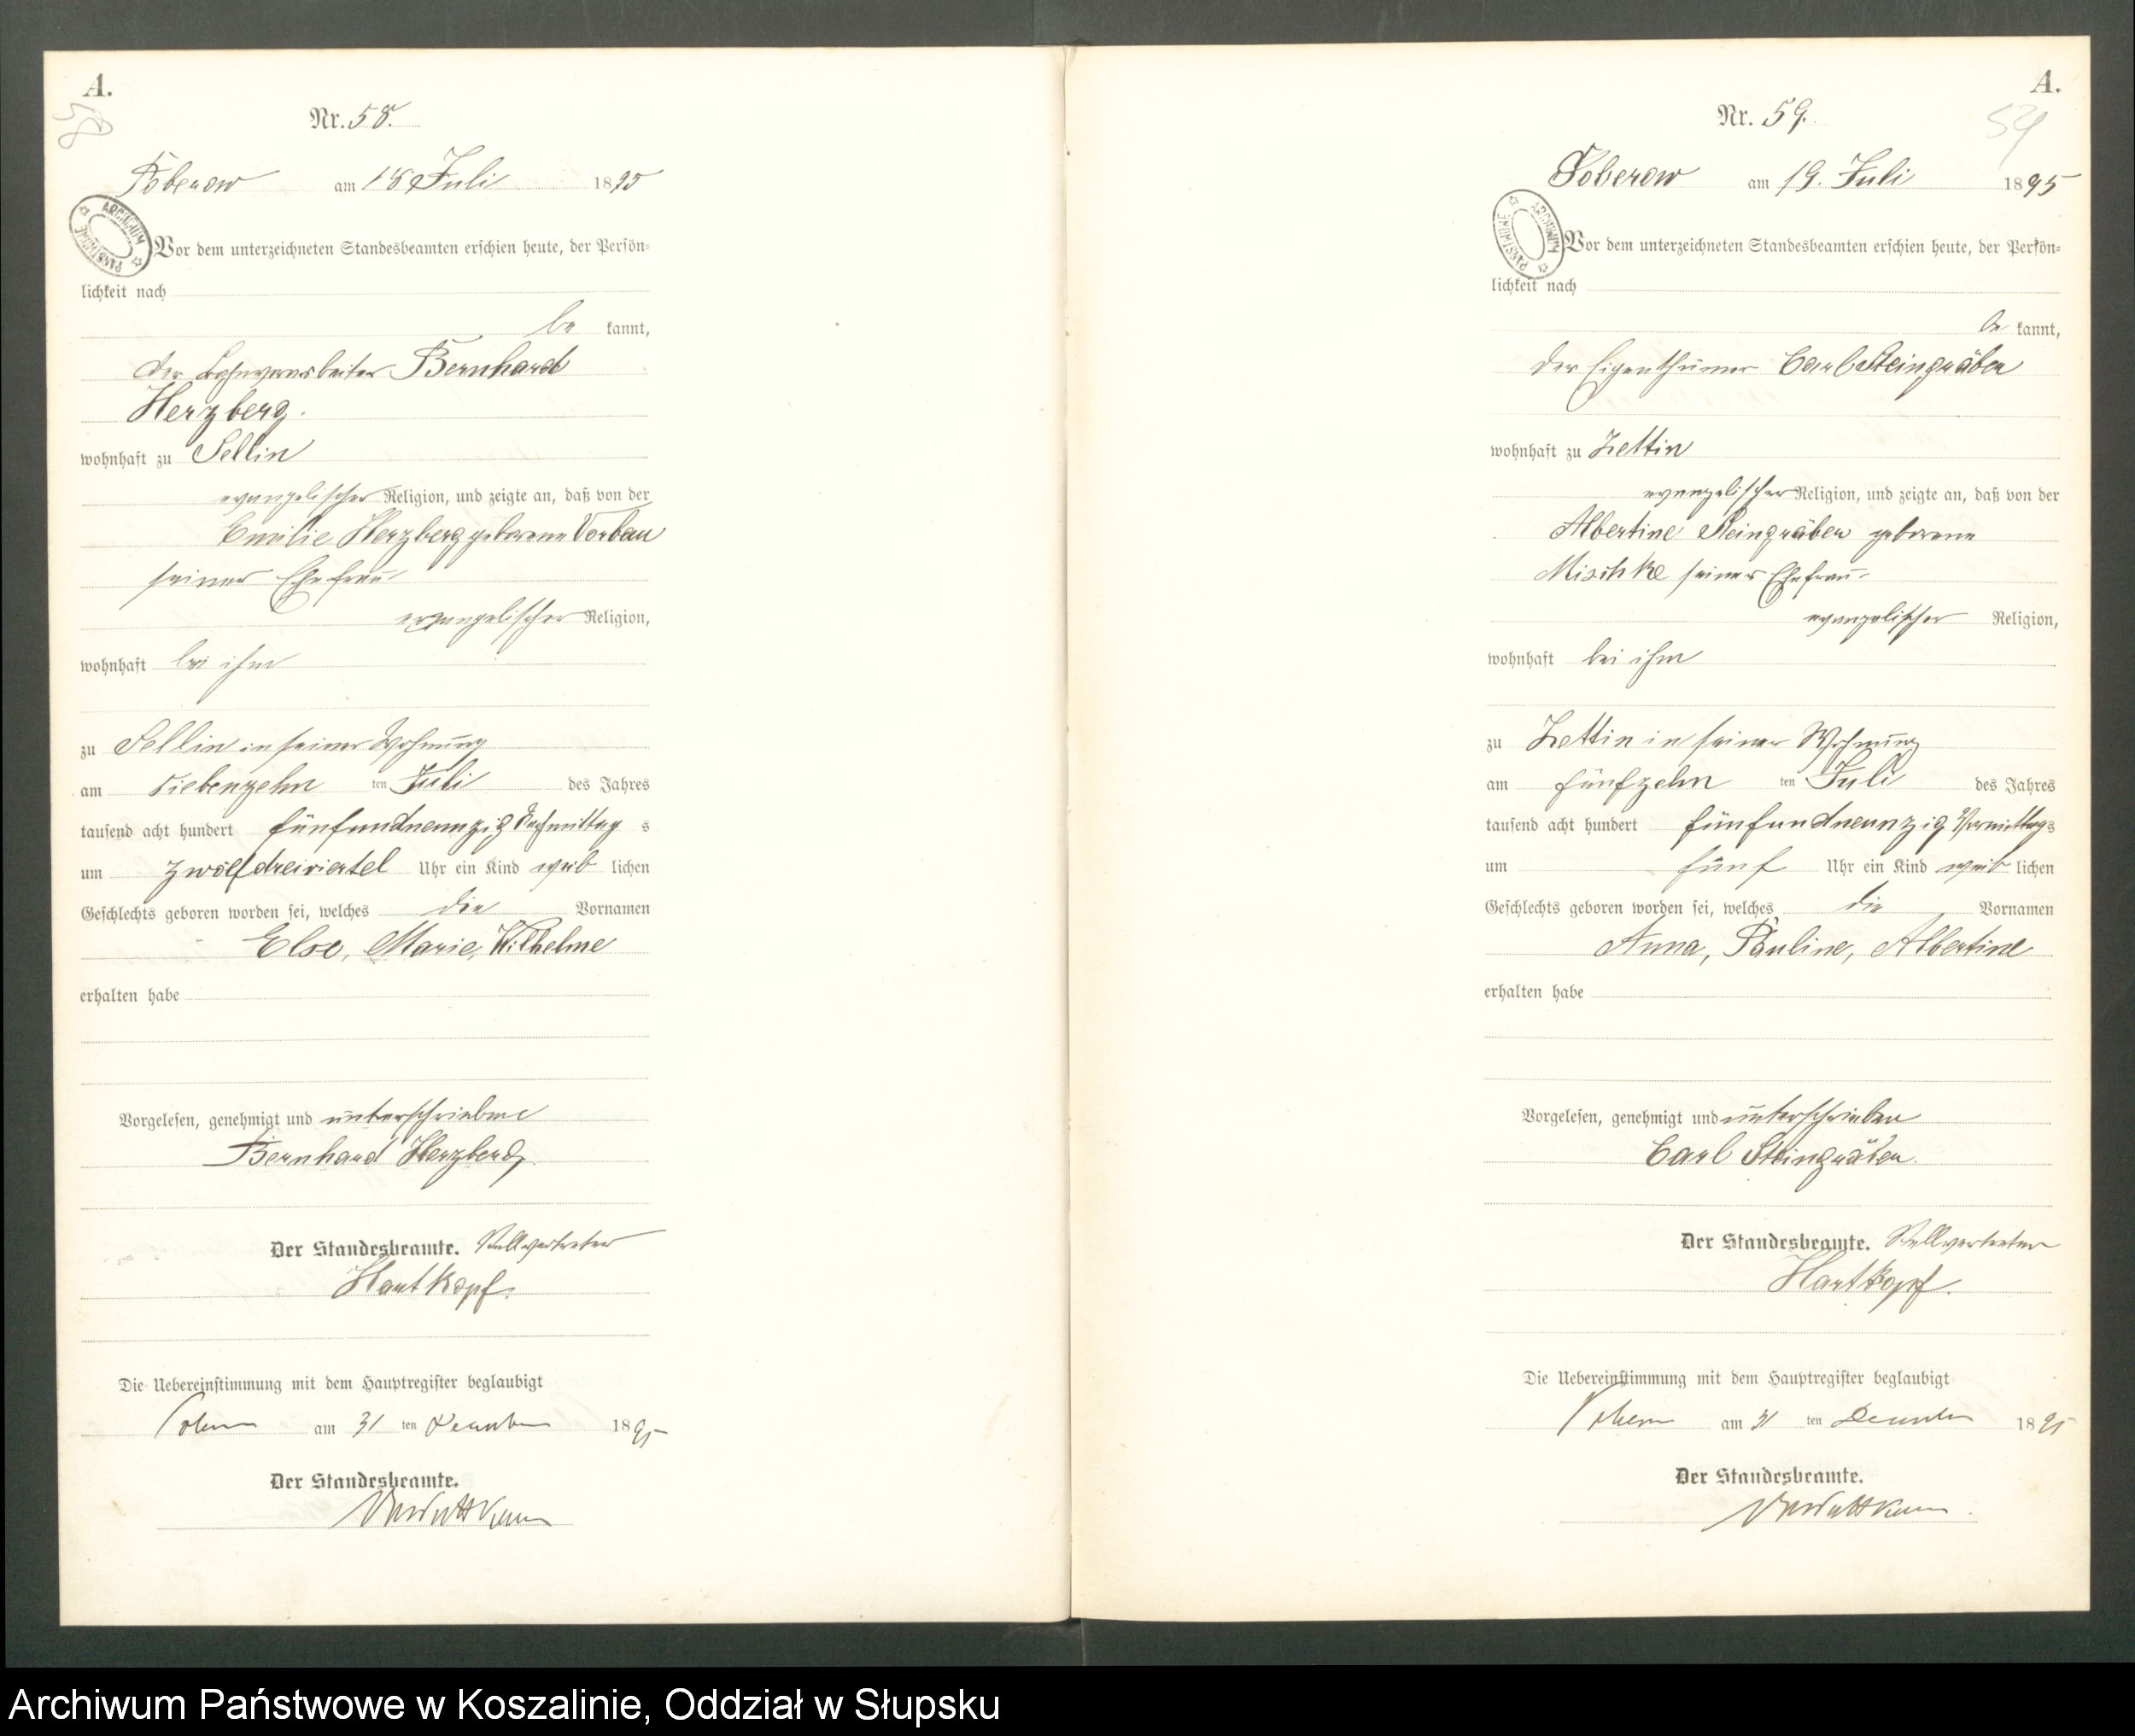 A.
58
Nr. 58.
Poberow am 18 Juli 1895
ARCHIWUM PAŃSTWOWE
Vor dem unterzeichneten Standesbeamten erschien heute, der Persön-
lichkeit nach
be kannt,
der Bahnvorarbeiter Bernhard
Herzberg.
wohnhaft zu Sellin
evangelischer Religion, und zeigte an, daß von der
Emilie Herzberg geborene Vorbau
seiner Ehefrau
evangelischer Religion,
wohnhaft bei ihm
zu Sellin in seiner Wohnung
am siebenzehn ten Juli des Jahres
tausend acht hundert fünfundneunzig Nachmittag s
um zwölfdreiviertel Uhr ein Kind weib lichen
Geschlechts geboren worden sei, welches die Vornamen
Else, Marie, Wilhelme
erhalten habe
Vorgelesen, genehmigt und unterschrieben
Bernhard Herzberg.
Der Standesbeamte. Stellvertreter
Hartkopf.
Die Uebereinstimmung mit dem Hauptregister beglaubigt
am 31 ten Dezember 1895
Der Standesbeamte.
A.
59
Nr. 59.
Poberow am 19. Juli 1895
ARCHIWUM PAŃSTWOWE
Vor dem unterzeichneten Standesbeamten erschien heute, der Persön-
lichkeit nach
be kannt,
der Eigenthümer Carl Steingräber
wohnhaft zu Zettin
evangelischer Religion, und zeigte an, daß von der
Albertine Steingräber geborene
Mischke seiner Ehefrau
evangelischer Religion,
wohnhaft bei ihm
zu Zettin in seiner Wohnung
am fünfzehn ten Juli des Jahres
tausend acht hundert fünfundneunzig Vormittag s
um fünf Uhr ein Kind weib lichen
Geschlechts geboren worden sei, welches die Vornamen
Anna, Pauline, Albertine
erhalten habe
Vorgelesen, genehmigt und unterschrieben
Carl Steingräber.
Der Standesbeamte. Stellvertreter
Hartkopf.
Die Uebereinstimmung mit dem Hauptregister beglaubigt
am 31 ten Dezember 1895
Der Standesbeamte.
Archiwum Państwowe w Koszalinie, Oddział w Słupsku